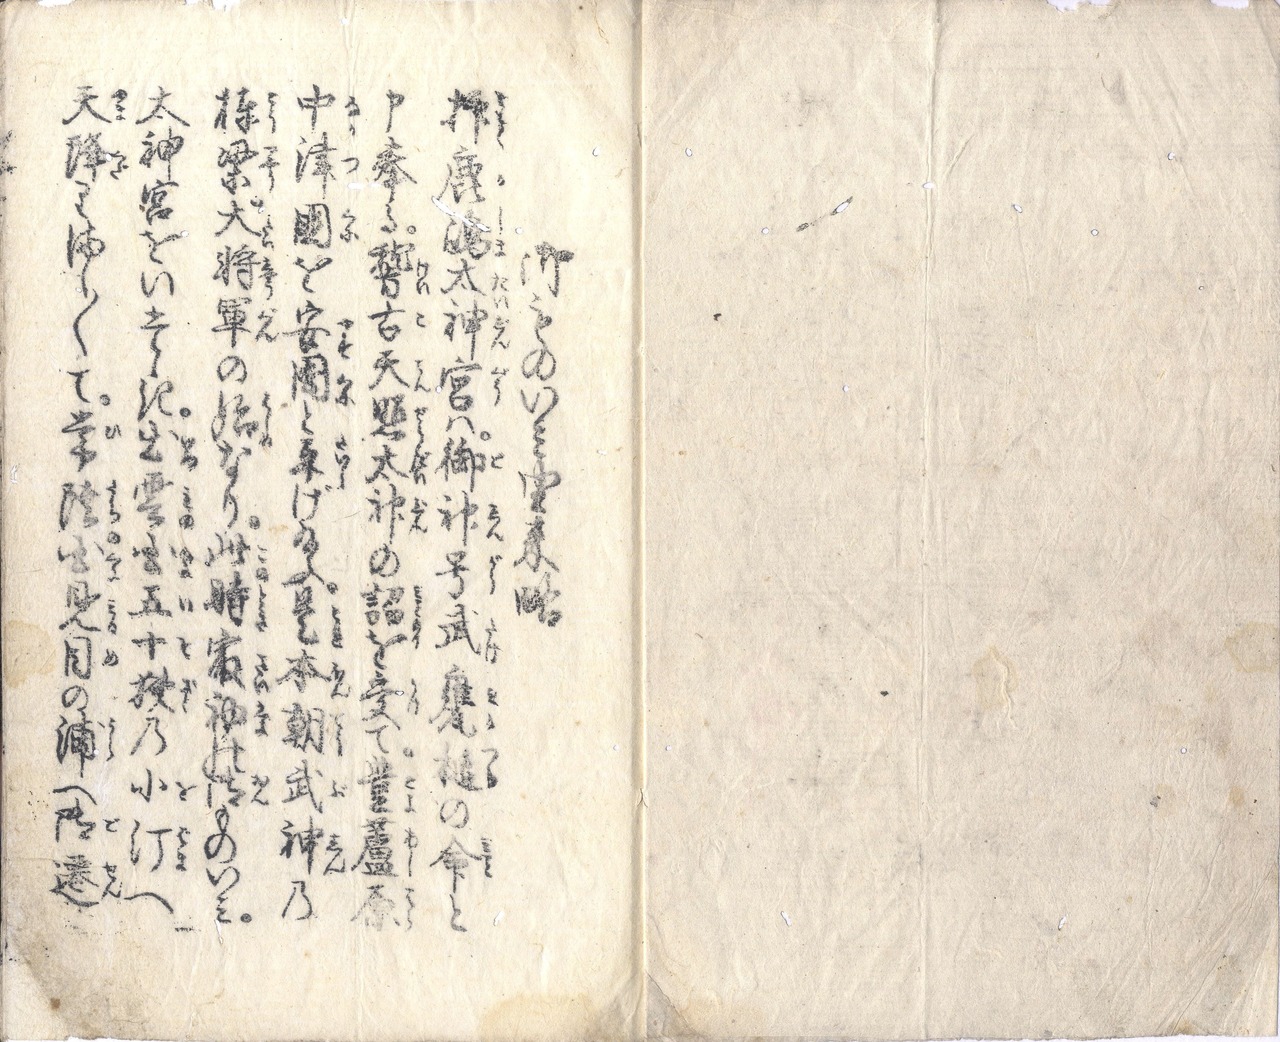 御ものいミ由来略
抑鹿嶋太神宮ハ。御神号武甕槌の命と
申奉る。稽古天照太神の詔を受て。豊蘆原
中津國を安國と平げ給ふ。是本朝武神乃
棟梁大将軍の始なり。此時最初神御ものいミ。
太神宮をいさき。出雲国五十狭乃小汀へ
天降りましくて。常陸国見目の浦へ御遷